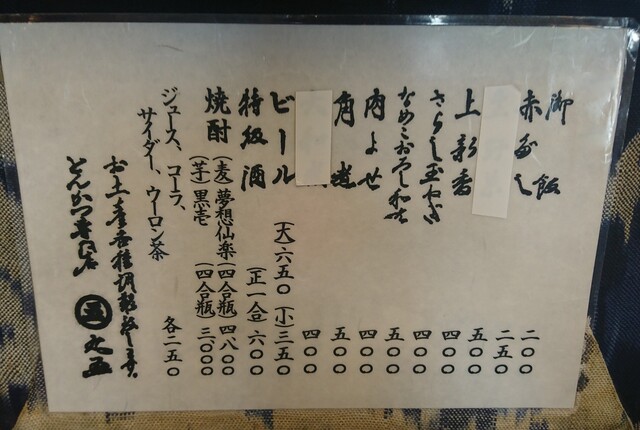 御飯 二〇〇
赤だし 二五〇
五〇〇
上新香 四〇〇
さらし玉ねぎ 四〇〇
なめこおろし和え 五〇〇
肉よせ 四〇〇
角煮 五〇〇
四〇〇
ビール (大)六五〇 (小)三五〇
特級酒 (正一合)六〇〇
焼酎 (麦)夢想仙楽(四合瓶)四八〇〇
(芋)黒壱(四合瓶)三〇〇〇
ジュース、コーラ、
サイダー、ウーロン茶 各二五〇
お土産各種調製致します。
とんかつ専門店 丸五